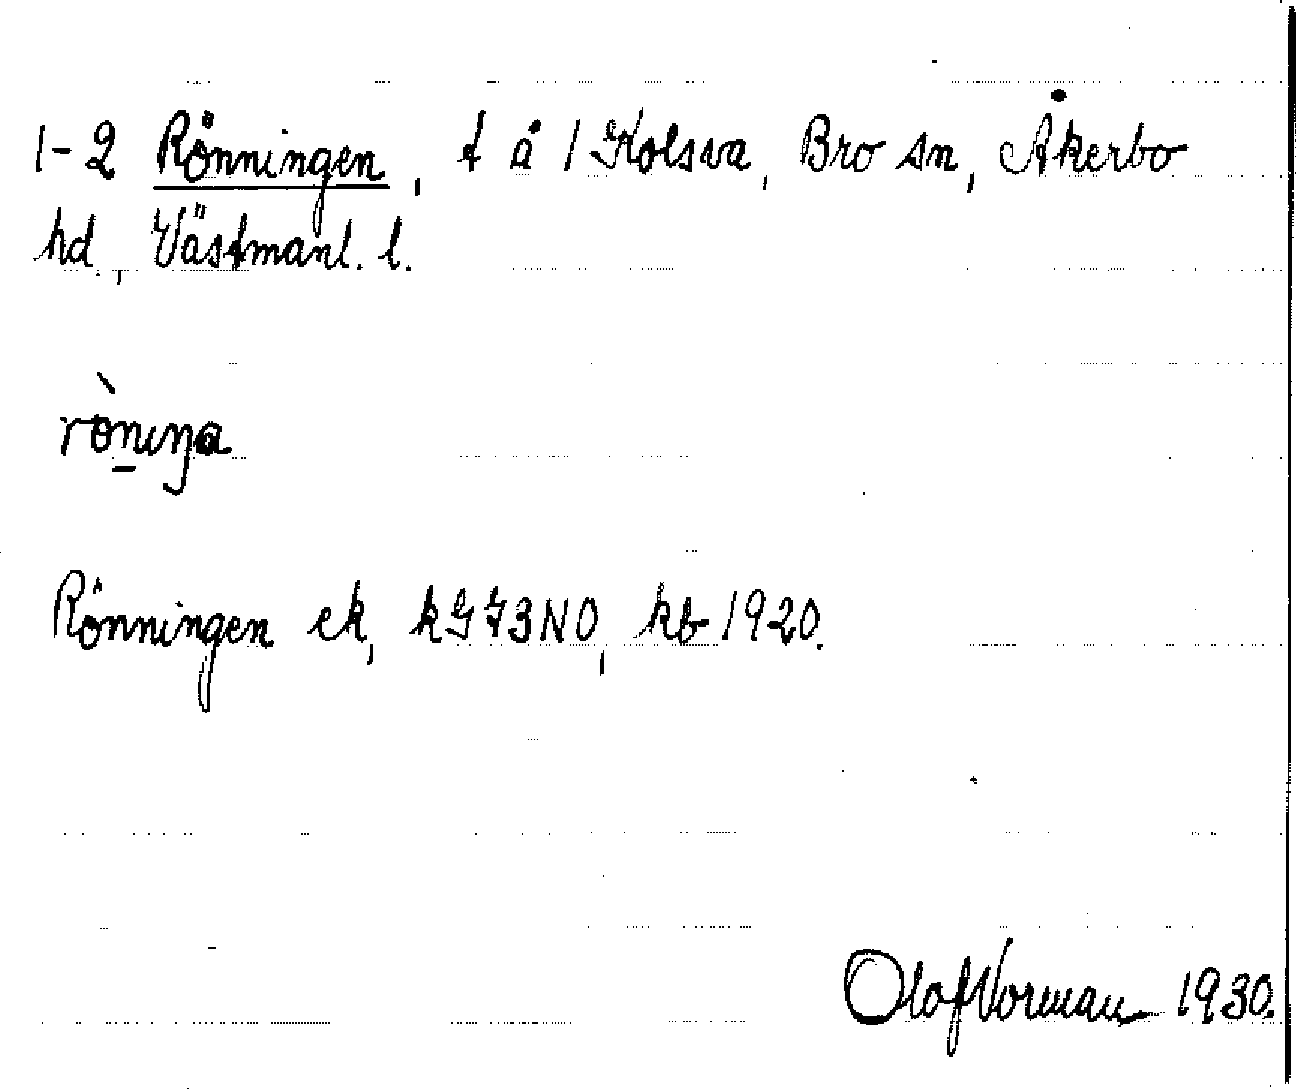 1-2 Rönningen, t å 1 Kolsva, Bro sn, Åkerbo
hd, Västmanl. l.
rò̱nıŋa
Rönningen ek, kGF3NO, kb 1920.
Olof Vorman 1930.